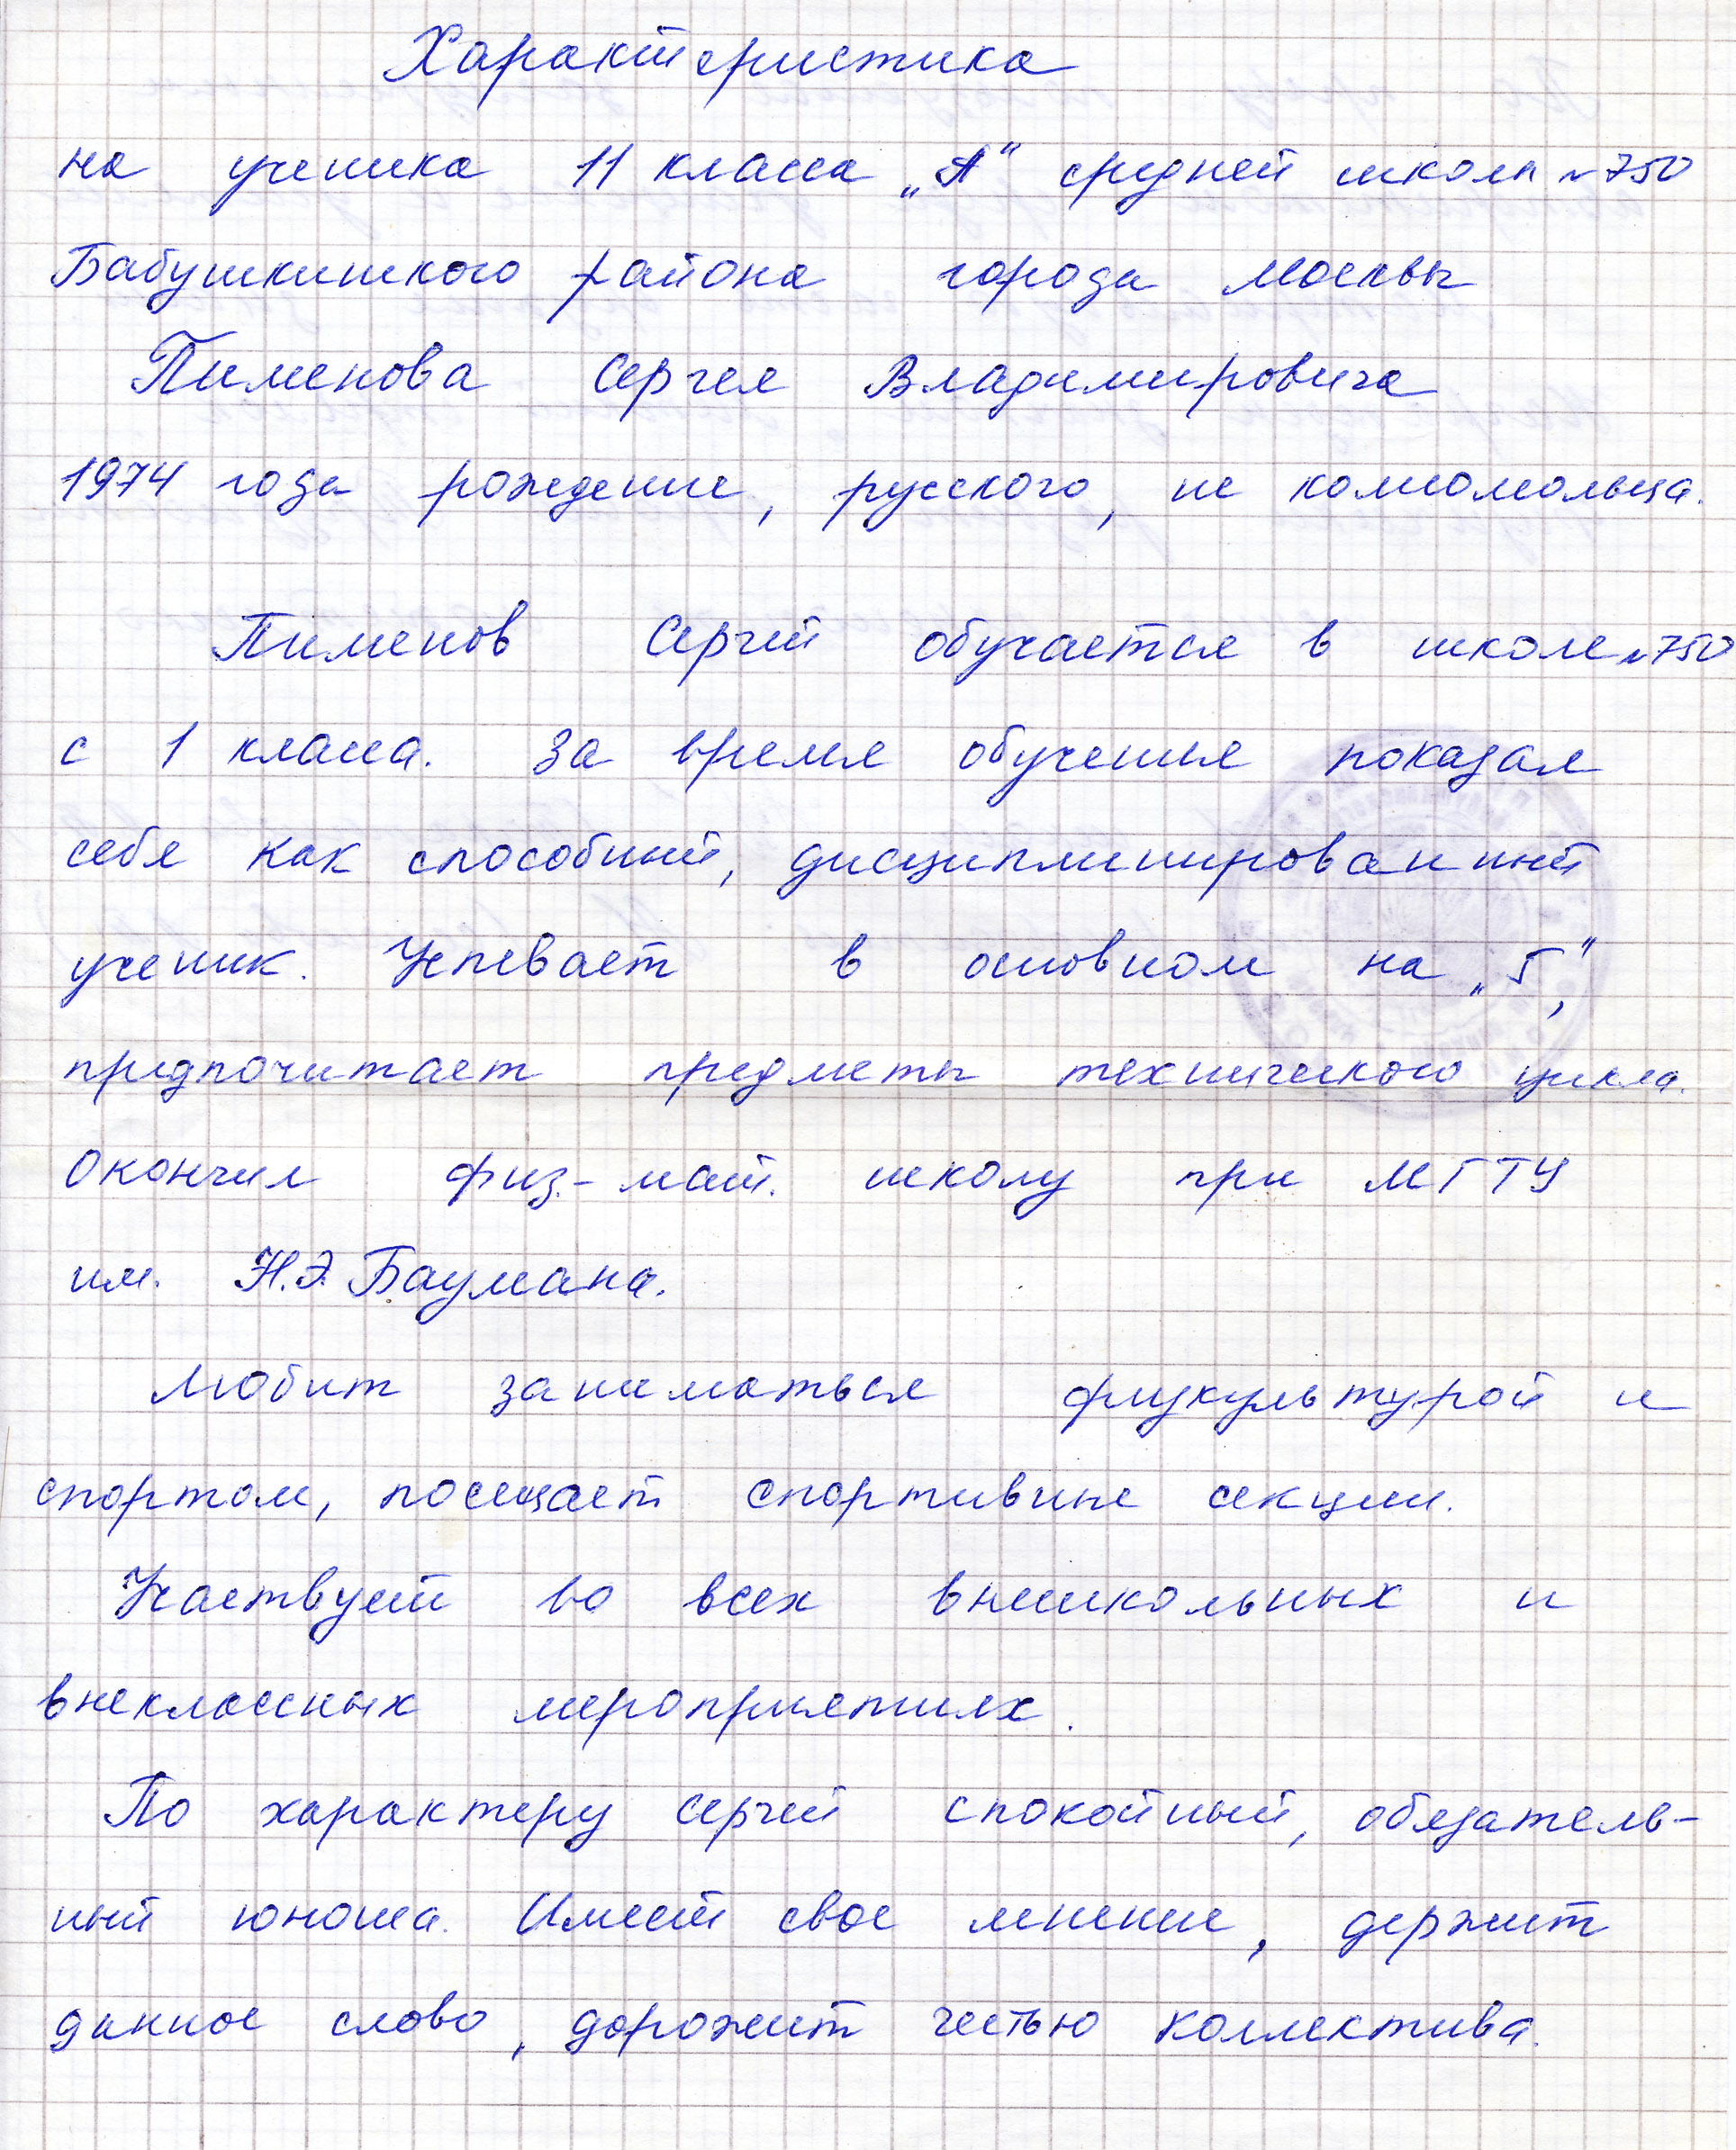 Характеристика
на ученика 11 класса „А“ средней школы №750
Бабушкинского района города Москвы
Пименова Сергея Владимировича
1974 года рождение, русского, не комсомольца.
Пименов Сергей обучается в школе №750
с 1 класса. За время обучения показал
себя как способный, дисциплинированный
ученик. Успевает в основном на „5“,
предпочитает предметы технического цикла.
Окончил физ.-мат. школу при МГТУ
им. Н.Э. Баумана.
Любит заниматься физкультурой и
спортом, посещает спортивные секции.
Участвует во всех внешкольных и
внеклассных мероприятиях.
По характеру Сергей спокойный, обязатель-
ный юноша. Имеет свое мнение, держит
данное слово, дорожит честью коллектива.